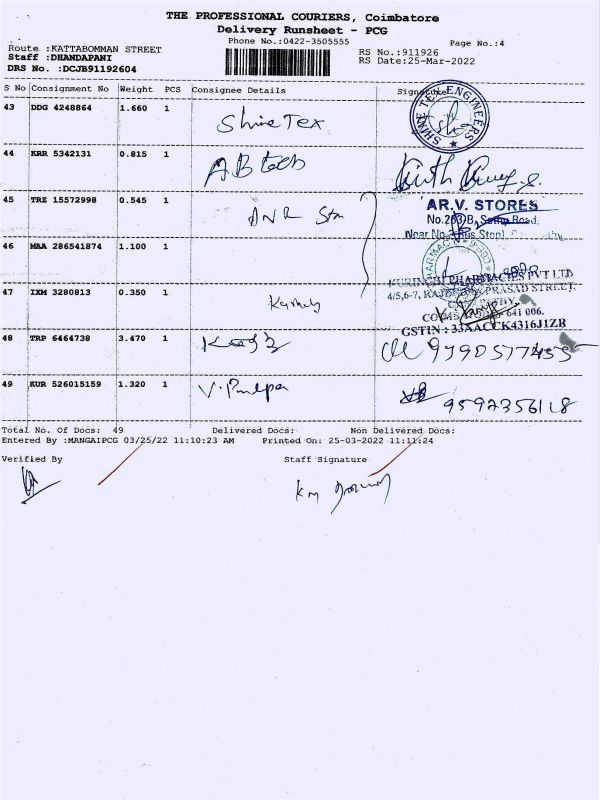 THE PROFESSIONAL COURIERS, Coimbatore
Delivery Runsheet - PCG
Phone No.:0422-3505555
Page No.:4
Route :KATTABOMMAN STREET
Staff :DHANDAPANI
DRS No. :DCJB91192604
RS No.:911926
RS Date:25-Mar-2022
S No Consignment No Weight PCS Consignee Details Signature
43 DDG 4248864 1.660 1 Shine Tex
SHINE TEX ENGINEERS
44 KRR 5342131 0.815 1
45 TRZ 15572998 0.545 1
AR.V. STORES
46 MAA 286541874 1.100 1
KURINCHI PHARMACIES PVT LTD
4/5,6-7, PRASAD STREET,
47 IXM 3280813 0.350 1
641 006.
GSTIN : 33AACCK4316J1ZR
48 TRP 6464738 3.470 1
49 KUR 526015159 1.320 1
9592356118
Total No. Of Docs: 49 Delivered Docs: Non Delivered Docs:
Entered By :MANGAIPCG 03/25/22 11:10:23 AM Printed On: 25-03-2022 11:11:24
Verified By Staff Signature